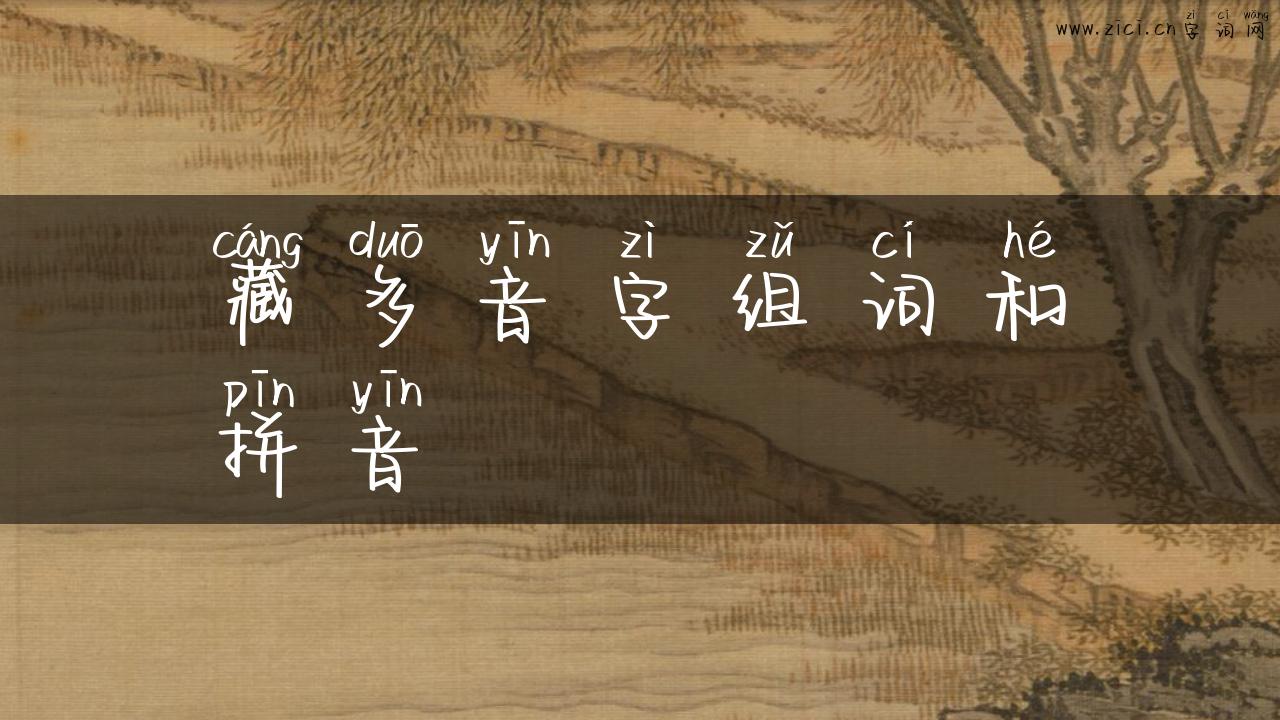 zì cí wǎng
www.zici.cn字词网
cáng duō yīn zì zǔ cí hé
藏多音字组词和
pīn yīn
拼音